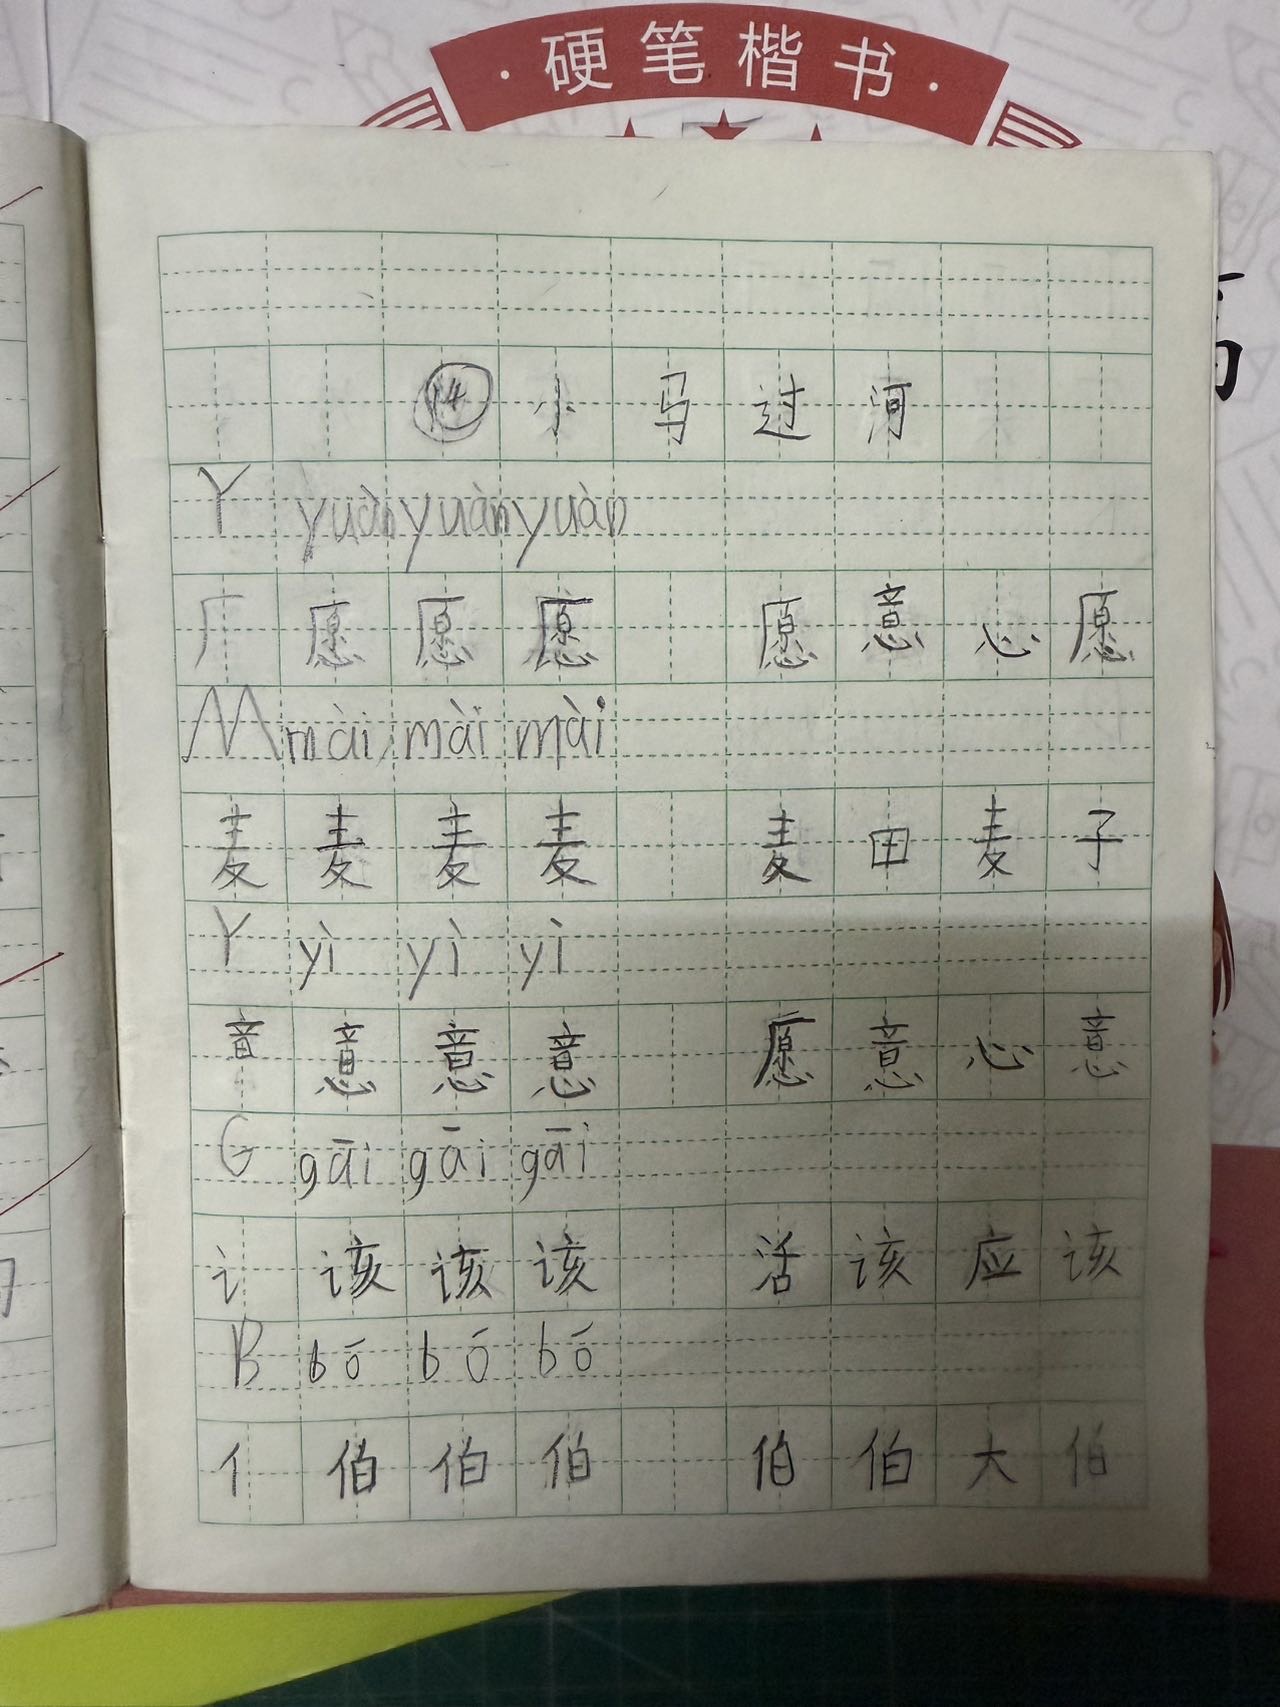 ·硬笔楷书·
⑭小马过河
Y yuàn yuàn yuàn
厂 愿 愿 愿 愿意 心愿
M mài mài mài
麦 麦 麦 麦 麦田 麦子
Y yì yì yì
音 意 意 意 愿意 心意
G gāi gāi gāi
讠 该 该 该 活该 应该
B bó bó bó
亻 伯 伯 伯 伯伯 大伯